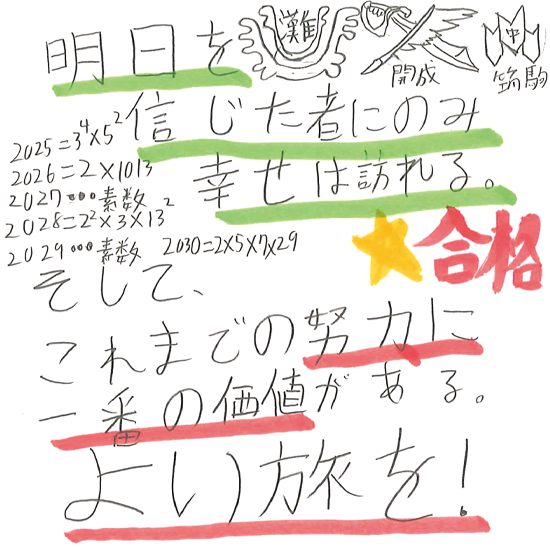 明日を
灘
開成
中
筑駒
信じた者にのみ
幸せは訪れる。
2025=3⁴×5²
2026=2×1013
2027…素数
2028=2²×3×13²
2029…素数
2030=2×5×7×29
★合格
そして、
これまでの努力に
一番の価値がある。
よい旅を!